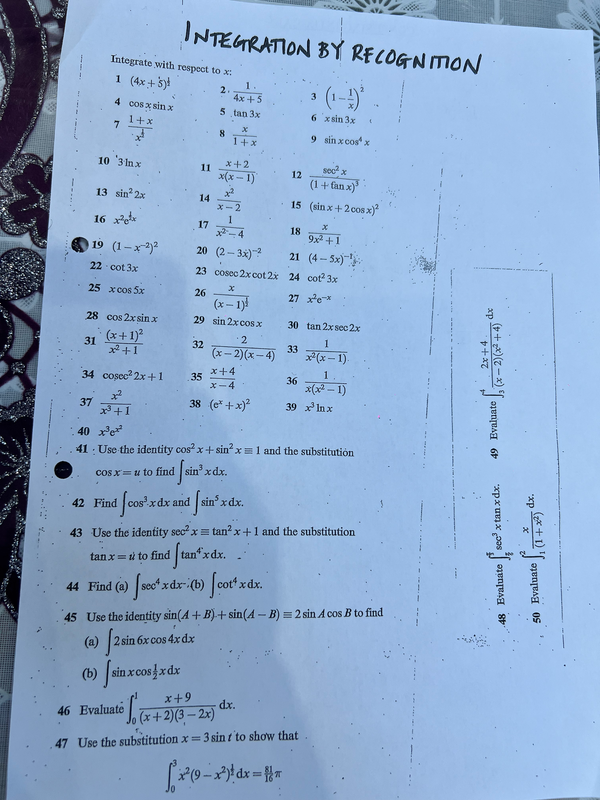 INTEGRATION BY RECOGNITION
Integrate with respect to x:
1 (4x + 5)^½ 2 1/(4x + 5) 3 (1 − 1/x)²
4 cos x sin x 5 tan 3x 6 x sin 3x
7 (1 + x)/x^½ 8 x/(1 + x) 9 sin x cos⁴ x
10 3 ln x 11 (x + 2)/(x(x − 1)) 12 sec² x/(1 + tan x)³
13 sin² 2x 14 x²/(x − 2) 15 (sin x + 2 cos x)²
16 x²e 17 1/(x² − 4) 18 x/(9x² + 1)
19 (1 − x⁻²)² 20 (2 − 3x)⁻² 21 (4 − 5x)⁻¹
22 cot 3x 23 cosec 2x cot 2x 24 cot² 3x
25 x cos 5x 26 x/(x − 1)^½ 27 x²e⁻ˣ
28 cos 2x sin x 29 sin 2x cos x 30 tan 2x sec 2x
31 (x + 1)²/(x² + 1) 32 2/((x − 2)(x − 4)) 33 1/(x²(x − 1))
34 cosec² 2x + 1 35 (x + 4)/(x − 4) 36 1/(x(x² − 1))
37 x²/(x³ + 1) 38 (eˣ + x)² 39 x³ ln x
40 x³e^(x²)
41 Use the identity cos² x + sin² x ≡ 1 and the substitution
cos x = u to find ∫ sin³ x dx.
42 Find ∫ cos³ x dx and ∫ sin⁵ x dx.
43 Use the identity sec² x ≡ tan² x + 1 and the substitution
tan x = u to find ∫ tan⁴ x dx.
44 Find (a) ∫ sec⁴ x dx (b) ∫ cot⁴ x dx.
45 Use the identity sin(A + B) + sin(A − B) ≡ 2 sin A cos B to find
(a) ∫ 2 sin 6x cos 4x dx
(b) ∫ sin x cos ½x dx
46 Evaluate ∫₀¹ (x + 9)/((x + 2)(3 − 2x)) dx.
47 Use the substitution x = 3 sin t to show that
∫₀³ x²(9 − x²)^½ dx = 81/16 π
48 Evaluate ∫ sec³ x tan x dx.
49 Evaluate ∫₃⁴ (2x + 4)/((x − 2)(x² + 4)) dx
50 Evaluate ∫₁² x/(1 + x²) dx.